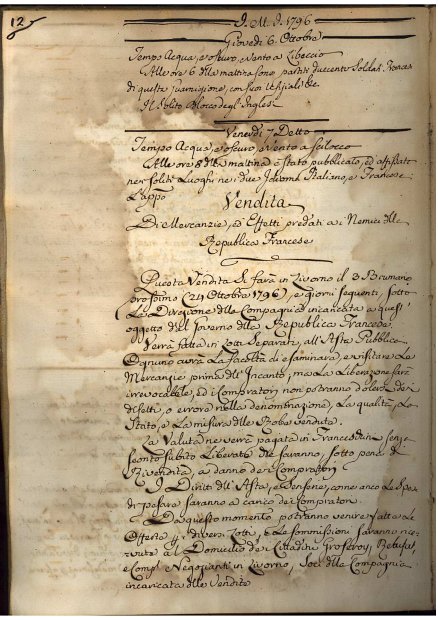 12
I. M. I. 1796
Giovedi 6. Ottobre
Tempo Acqua, e oscuro, e vento a Libeccio
Alle ore 6 dlla mattina sono partiti duecento Soldati Francesi
di questa guarnigione, con suoi Uffiziali &c.
Il Solito Blocco degl'Inglesi
Venerdi 7 Detto
Tempo Acqua, e oscuro, e vento a Scilocco
Alle ore 8 dlla mattina è stato pubblicato, ed affissato
nei soliti Luoghi ne i due Idiomi Italiano, e Francese
L'appo
Vendita
Di Mercanzie, ed Effetti predati a i Nemici dlla
Republica Francese
Questa Vendita Si farà in Livorno il 3 Brumano
prossimo (24 Ottobre 1796), e giorni seguenti, sotto
La Direzione dlla Compagnia incaricata a quest'
oggetto dal Governo dlla Republica Francese
Verrà fatta in Lotti Separati, all'Asta Pubblica
Ognuno avrà La facoltà di esaminare, e visitare Le
Mercanzie prima dll'Incanto, ma La Liberazione sarà
irrevocabile, ed i Compratori non potranno dolersi dei
difetti, o errore nella denominazione, La qualità, Lo
Stato, e La misura dlle Robe vendute.
La Valuta ne verrà pagata in Francesconi senza
sconto subito Liberate che saranno, sotto pena di
Rivendita, a danno dei Compratori
I Diritti dll'Asta, e Senserie, come anco Le Spe-
di pesare saranno a carico dei Compratori.
Da questo momento potranno venire fatte Le
Offerte p. i diversi Lotti, e Le Sommissioni saranno rice-
vute al Domicilio de i Cittadini
e Comp. Negozianti in Livorno, Soci dlla Compagnia
incaricata dlle Vendite